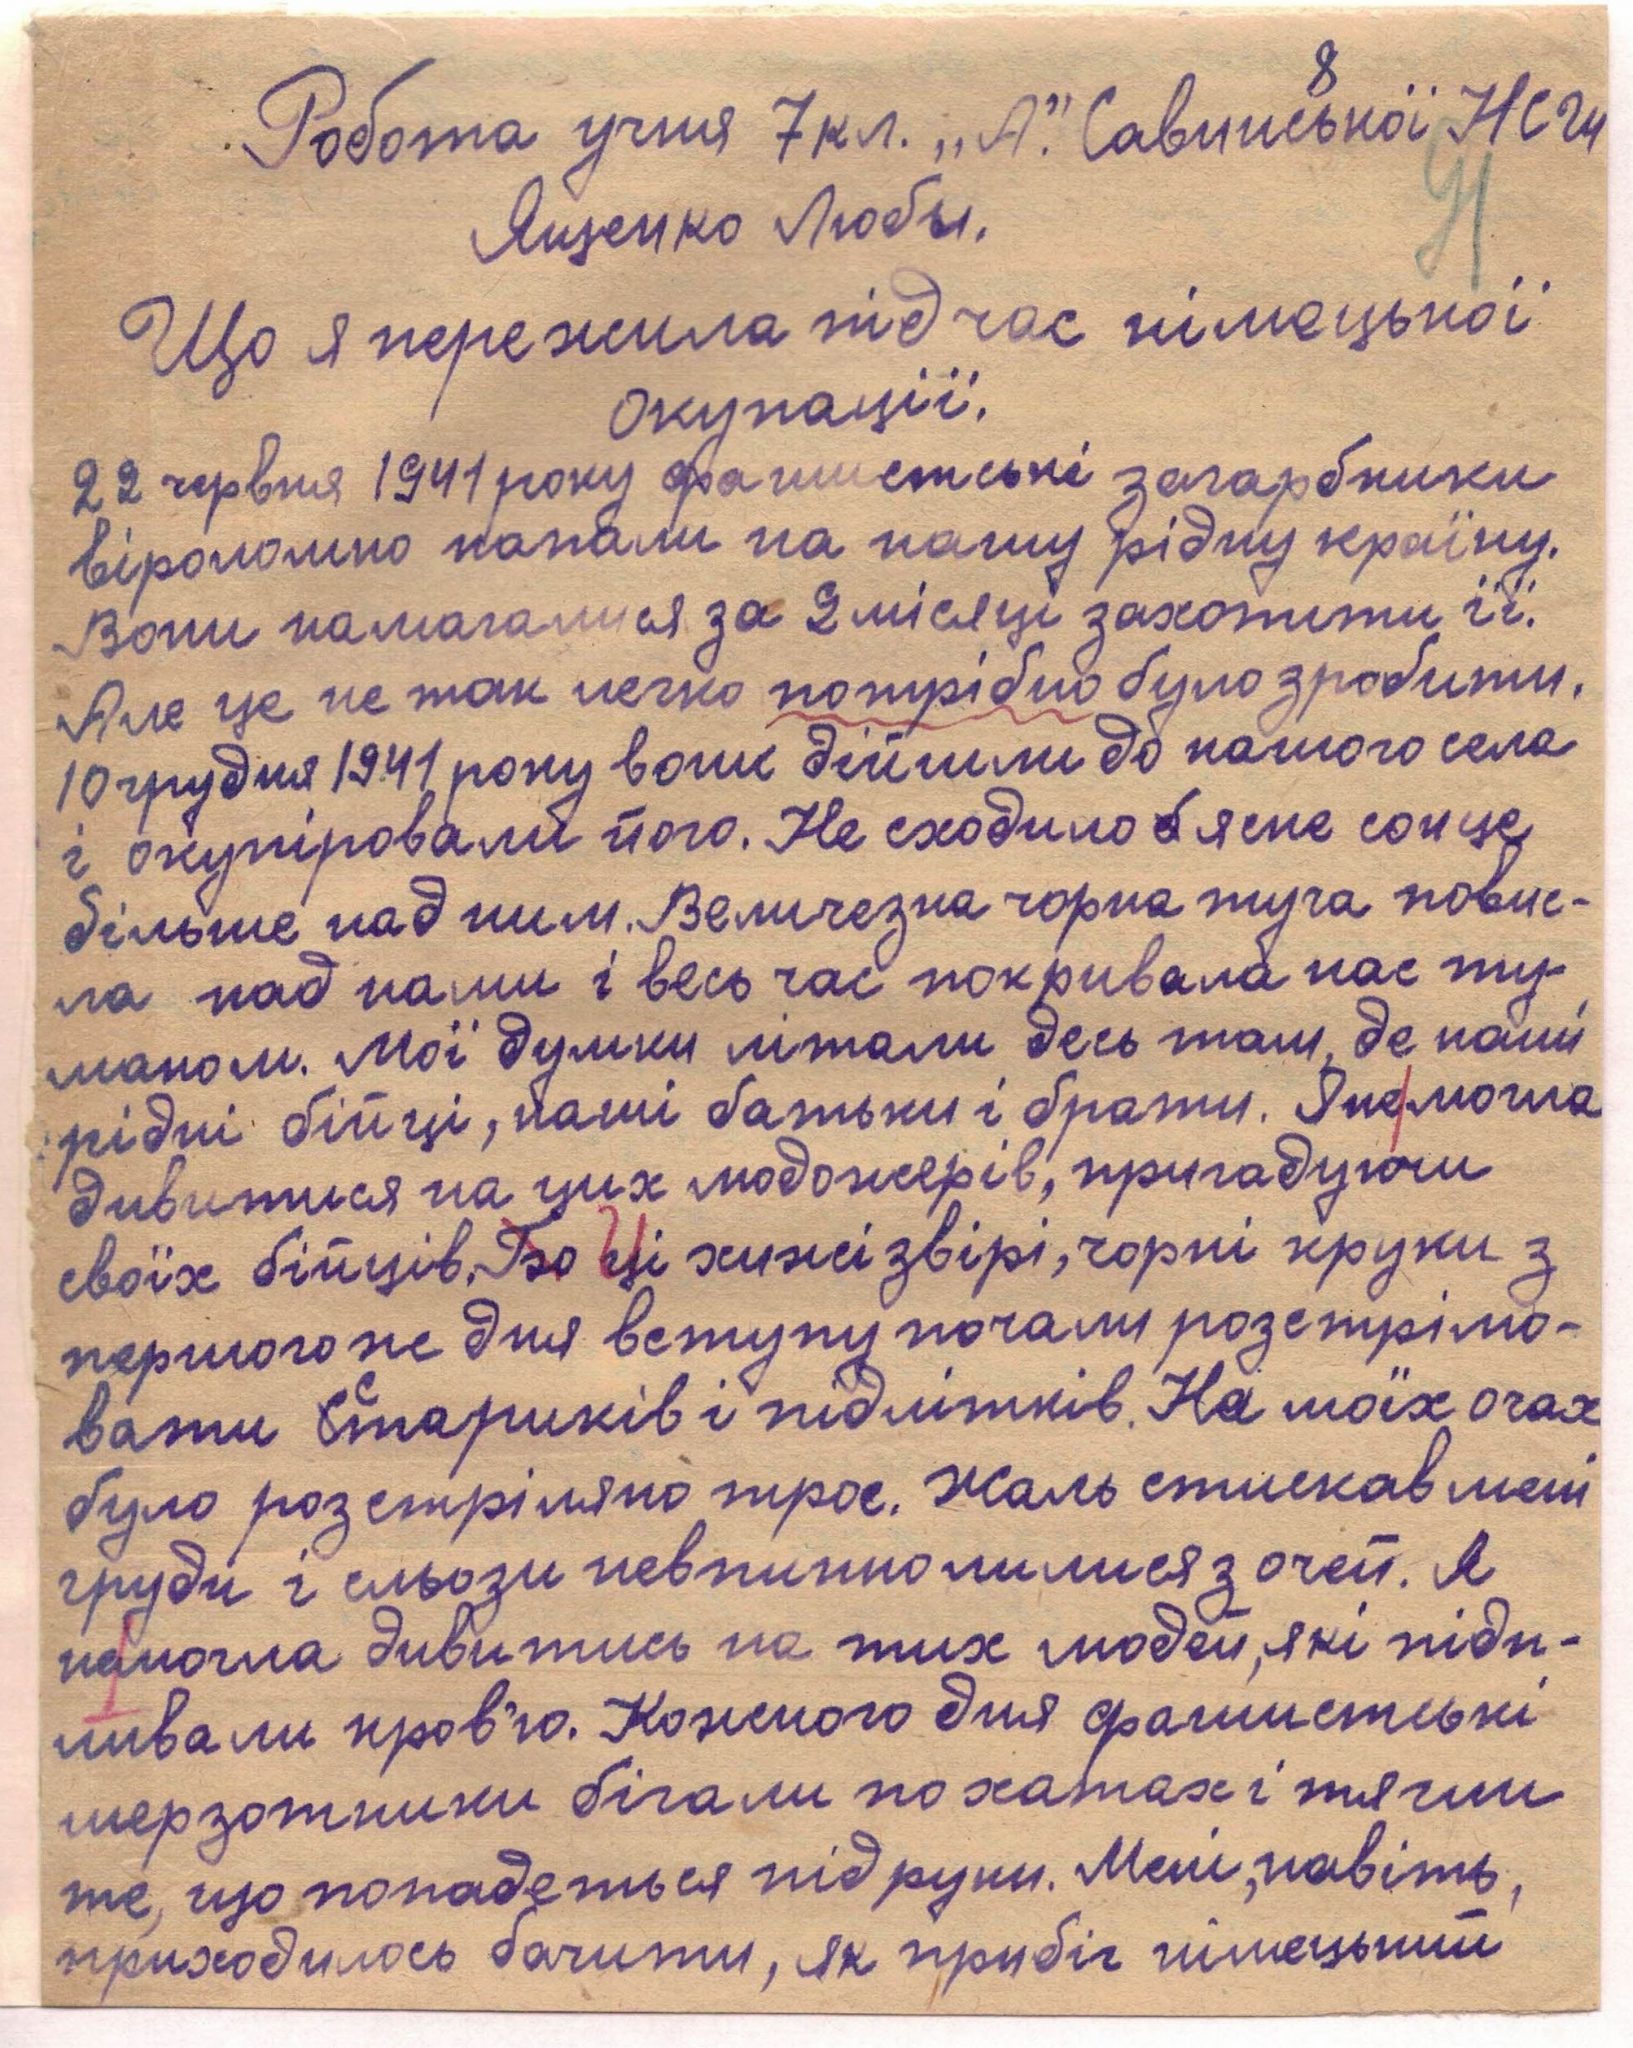 8
Робота учня 7кл. „А". Савинської НСШ
Ященко Люби.
Що я пережила під час німецької
окупації.
22 червня 1941 року фашистські загарбники
віроломно напали на нашу рідну країну.
Вони намагалися за 2 місяці захопити її.
Але це не так легко потрібно було зробити.
10 грудня 1941 року вони дійшли до нашого села
і окупіровали його. Не сходило б ясне сонце
більше над ним. Величезна чорна туча повис-
ла над нами і весь час покривала нас ту-
маном. Мої думки літали десь там, де наші
рідні бійці, наші батьки і брати. Я не могла
дивитися на цих людожерів, пригадуючи
своїх бійців. Бо Ці хижі звірі, чорні круки з
першого же дня вступу почали розстрілю-
вати стариків і підлітків. На моїх очах
було розстріляно троє. Жаль стискав мені
груди і сльози невпинно лилися з очей. Я
не могла дивитись на тих людей, які підп-
ливали кров'ю. Кожного дня фашистські
мерзотники бігали по хатах і тягли
те, що попадеться під руки. Мені, навіть,
приходилось бачити, як прибіг німецький